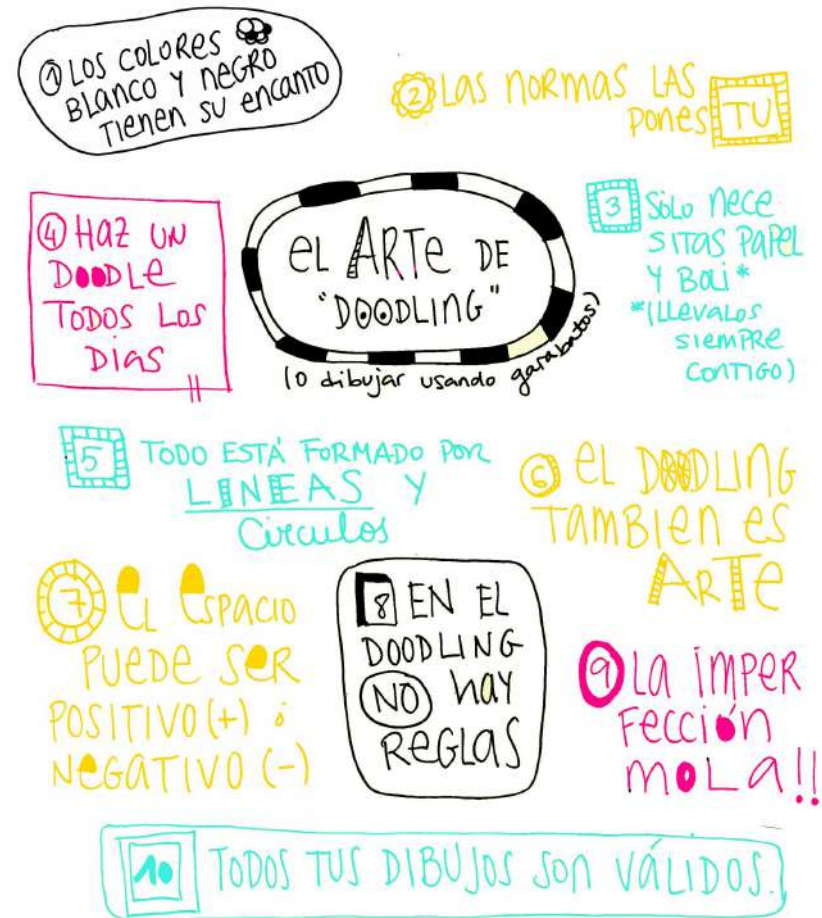 ① LOS COLORES
BLANCO Y NEGRO
TIENEN SU ENCANTO
② LAS NORMAS LAS
PONES TU
EL ARTE DE
"DOODLING"
(O dibujar usando garabatos)
3 SOLO NECE
SITAS PAPEL
Y BOLI*
*(LLEVALOS
SIEMPRE
CONTIGO)
④ HAZ UN
DOODLE
TODOS LOS
DIAS
5 TODO ESTÁ FORMADO POR
LINEAS Y
Circulos
⑥ EL DOODLING
TAMBIEN ES
ARTE
7 EL ESPACIO
PUEDE SER
POSITIVO (+) ó
NEGATIVO (-)
8 EN EL
DOODLING
NO HAY
REGLAS
9 LA IMPER
FECCIÓN
MOLA!!
10 TODOS TUS DIBUJOS SON VÁLIDOS.